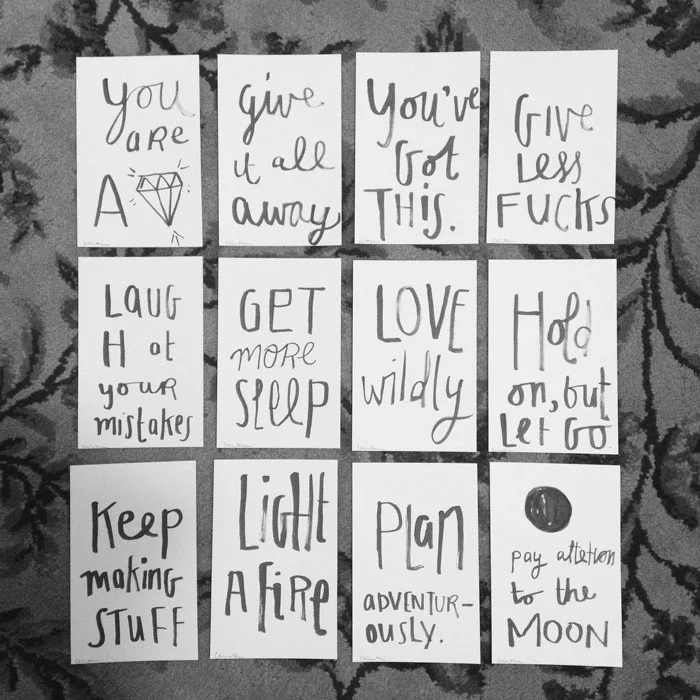 You
are
A
give
it all
away
You've
Got
THiS.
GIVe
Less
FUCKS
LAUG
H at
youR
mistakes
GET
more
SLeeP
LOVE
wildly
Hold
on, but
Let GO.
Keep
making
STUFF
LIGHt
A FiRe
PLan
ADVENTUR-
OUSLY.
pay attetion
to the
MOON